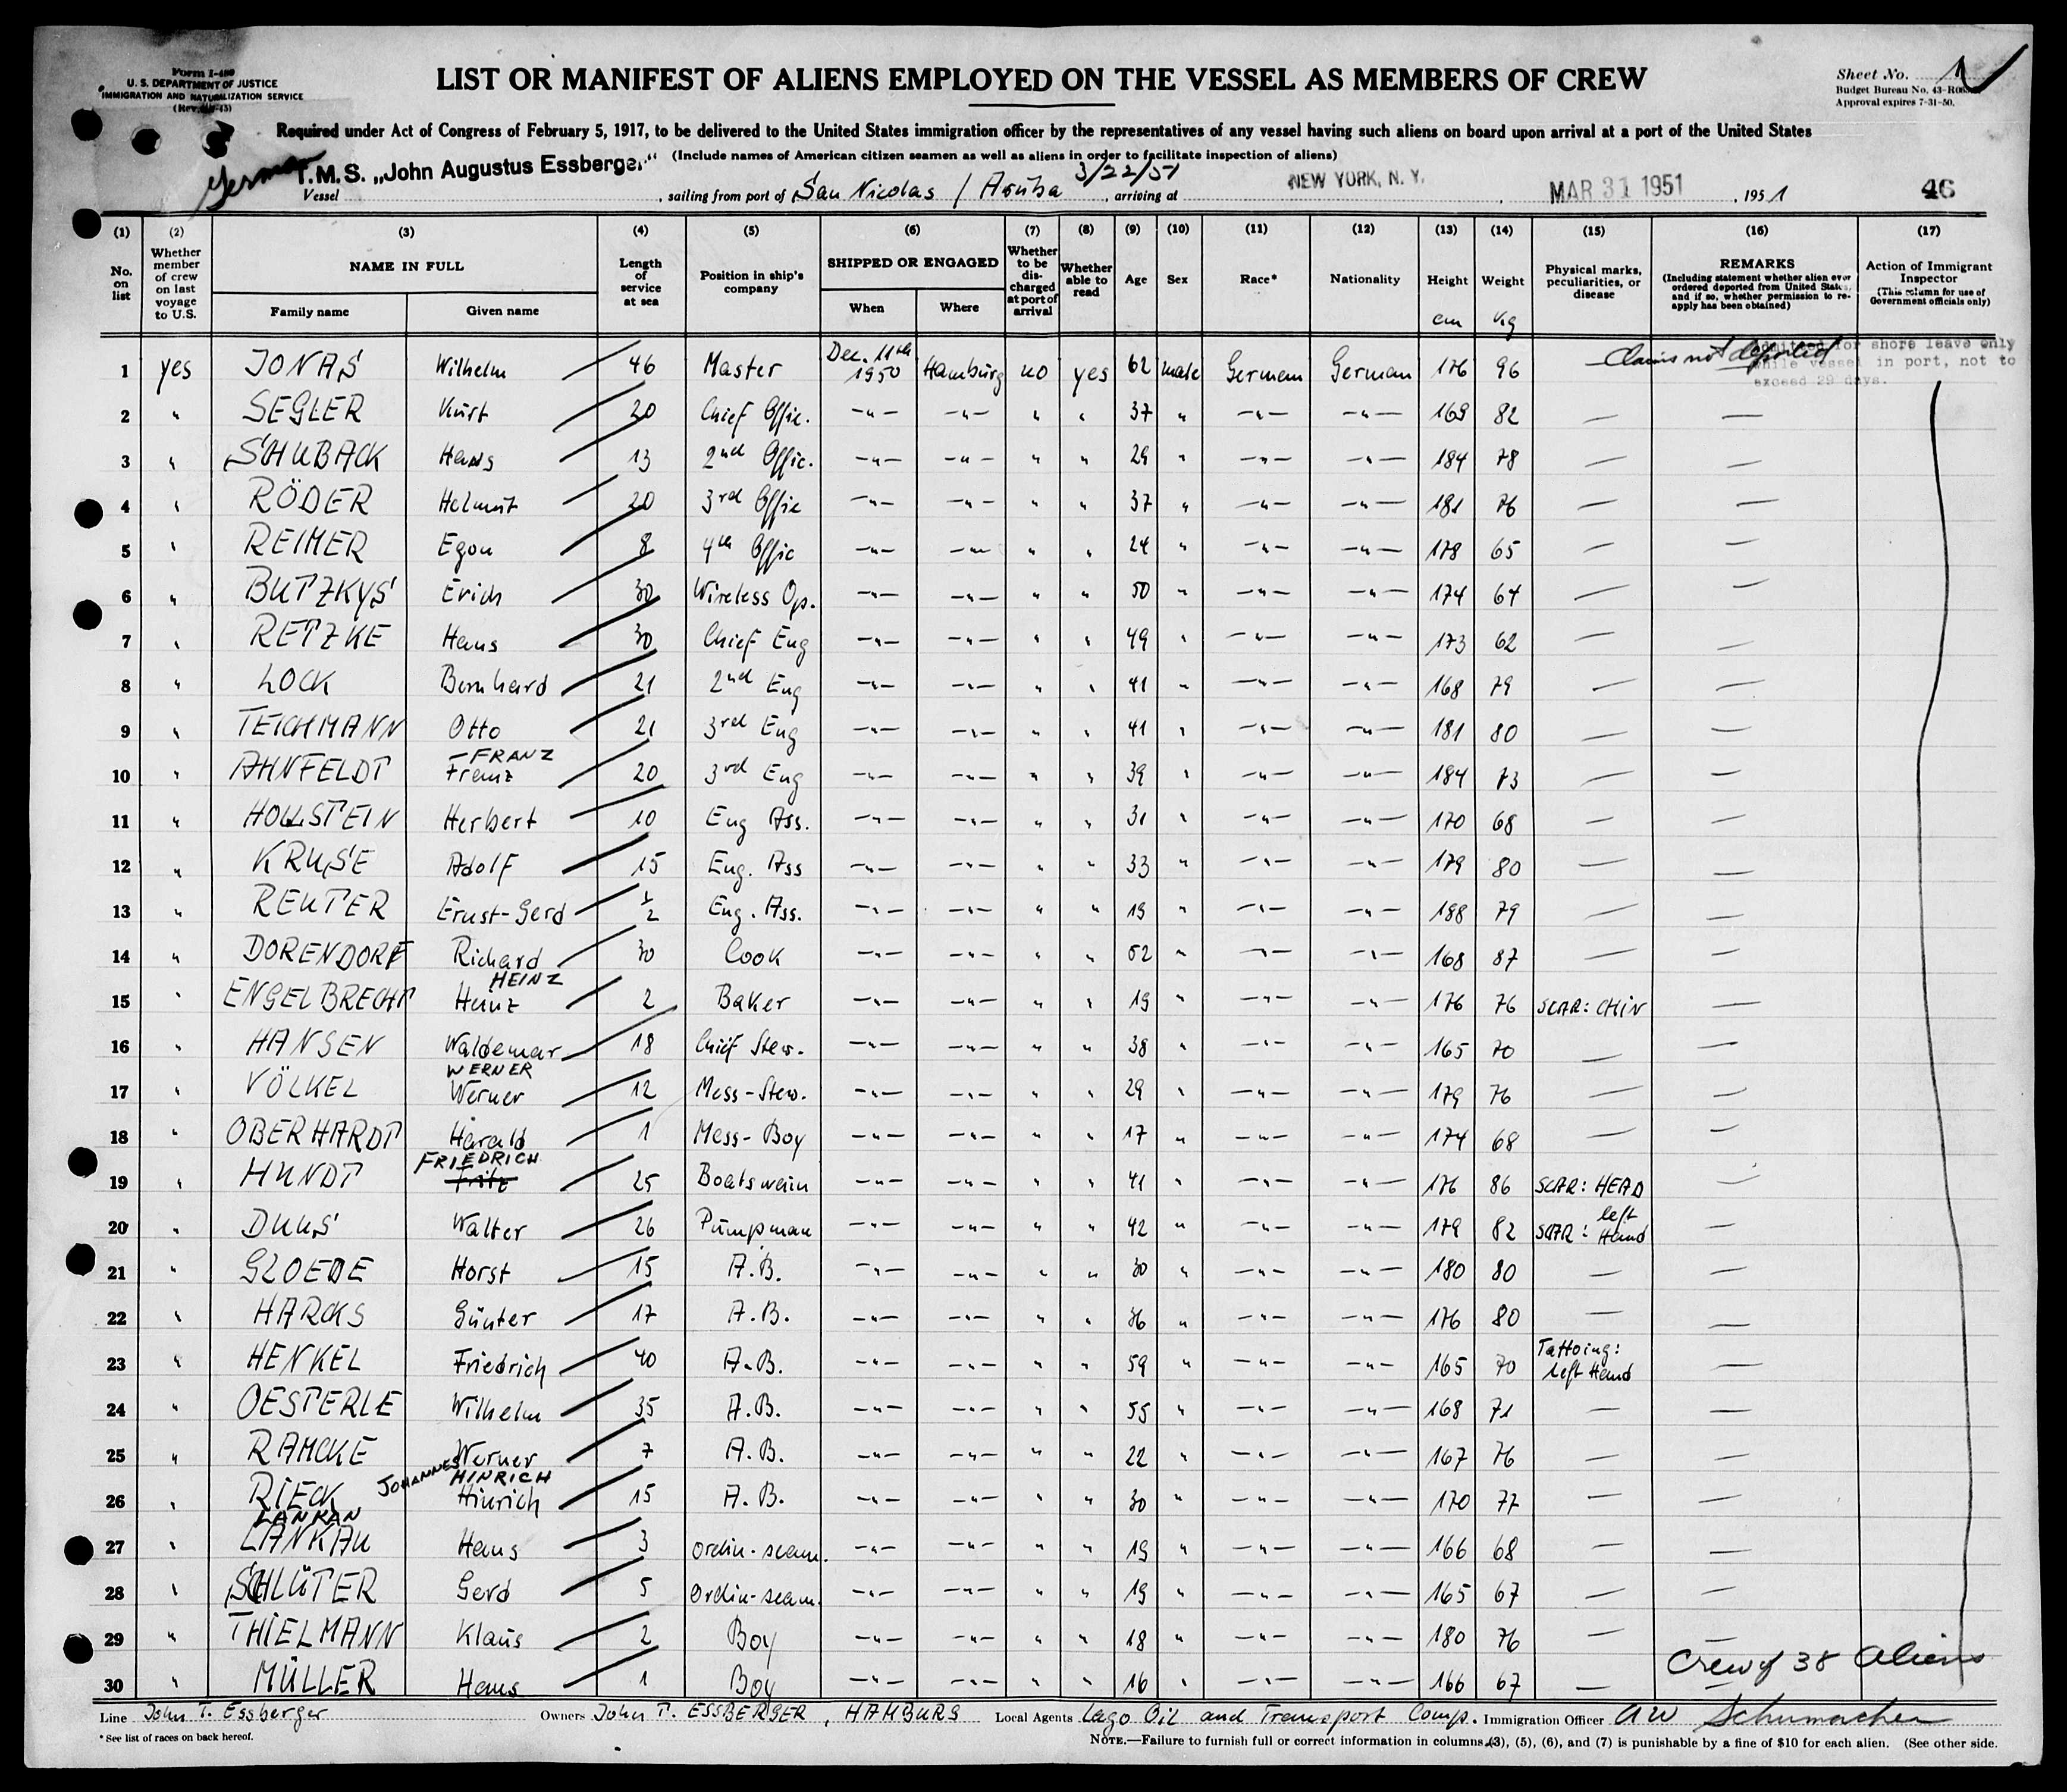 Form I-480
U. S. DEPARTMENT OF JUSTICE
IMMIGRATION AND NATURALIZATION SERVICE
LIST OR MANIFEST OF ALIENS EMPLOYED ON THE VESSEL AS MEMBERS OF CREW
Sheet No. 1
Budget Bureau No. 43-
Approval expires 7-31-50.
Required under Act of Congress of February 5, 1917, to be delivered to the United States immigration officer by the representatives of any vessel having such aliens on board upon arrival at a port of the United States
(Include names of American citizen seamen as well as aliens in order to facilitate inspection of aliens)
German T.M.S. „John Augustus Essberger“
Vessel , sailing from port of San Nicolas / Aruba 3/22/51 , arriving at NEW YORK, N. Y. , MAR 31 1951 , 1951 46
(1) (2) (3) (4) (5) (6) (7) (8) (9) (10) (11) (12) (13) (14) (15) (16) (17)
No. on list
Whether member of crew on last voyage to U.S.
NAME IN FULL
Family name Given name
Length of service at sea
Position in ship's company
SHIPPED OR ENGAGED
When Where
Whether to be discharged at port of arrival
Whether able to read
Age Sex Race* Nationality
Height cm
Weight kg
Physical marks, peculiarities, or disease
REMARKS
(Including statement whether alien ever ordered deported from United States, and if so, whether permission to reapply has been obtained)
Action of Immigrant Inspector
(This column for use of Government officials only)
Claims not deported
admitted for shore leave only
while vessel in port, not to
exceed 29 days.
1 yes JONAS Wilhelm 46 Master Dec. 11th 1950 Hamburg no yes 62 male German German 176 96
2 " SEGLER Kurt 20 Chief Offic. —"— —"— " " 37 " —"— —"— 169 82 — —
3 " SCHUBACK Hans 13 2nd Offic. —"— —"— " " 29 " —"— —"— 184 78 — —
4 " RÖDER Helmut 20 3rd Offic —"— —"— " " 37 " —"— —"— 181 76 — —
5 " REIMER Egon 8 4th Offic —"— —"— " " 24 " —"— —"— 178 65 — —
6 " BUTZKYS Erich 30 Wireless Op. —"— —"— " " 50 " —"— —"— 174 64 — —
7 " RETZKE Hans 30 Chief Eng —"— —"— " " 49 " —"— —"— 173 62 — —
8 " LOCK Bernhard 21 2nd Eng —"— —"— " " 41 " —"— —"— 168 79 — —
9 " TEICHMANN Otto 21 3rd Eng —"— —"— " " 41 " —"— —"— 181 80 — —
10 " AHNFELDT —FRANZ Franz 20 3rd Eng —"— —"— " " 39 " —"— —"— 184 73 — —
11 " HOLLSTEIN Herbert 10 Eng Ass. —"— —"— " " 31 " —"— —"— 170 68 — —
12 " KRUSE Adolf 15 Eng. Ass —"— —"— " " 33 " —"— —"— 179 80 — —
13 " REUTER Ernst-Gerd 1/2 Eng. Ass. —"— —"— " " 19 " —"— —"— 188 79 — —
14 " DORENDORF Richard 30 Cook —"— —"— " " 52 " —"— —"— 168 87 — —
15 " ENGELBRECHT HEINZ Heinz 2 Baker —"— —"— " " 19 " —"— —"— 176 76 SCAR: CHIN —
16 " HANSEN Waldemar 18 Chief Stew. —"— —"— " " 38 " —"— —"— 165 70 — —
17 " VÖLKEL WERNER Werner 12 Mess-Stew. —"— —"— " " 29 " —"— —"— 179 76 — —
18 " OBERHARDT Harald 1 Mess-Boy —"— —"— " " 17 " —"— —"— 174 68 — —
19 " HUNDT FRIEDRICH Fritz 25 Boatswain —"— —"— " " 41 " —"— —"— 176 86 SCAR: HEAD —
20 " DUUS Walter 26 Pumpman —"— —"— " " 42 " —"— —"— 179 82 SCAR: left Hand —
21 " GLOEDE Horst 15 A.B. —"— —"— " " 30 " —"— —"— 180 80 — —
22 " HARCKS Günter 17 A.B. —"— —"— " " 36 " —"— —"— 176 80 — —
23 " HENKEL Friedrich 40 A.B. —"— —"— " " 59 " —"— —"— 165 70 Tattoing: left Hand —
24 " OESTERLE Wilhelm 35 A.B. —"— —"— " " 55 " —"— —"— 168 71 — —
25 " RAMCKE Werner 7 A.B. —"— —"— " " 22 " —"— —"— 167 76 — —
26 " RIECK JOHANNES HINRICH Hinrich 15 A.B. —"— —"— " " 30 " —"— —"— 170 77 — —
27 " LANKAN LANKAU Hans 3 Ordin-seam. —"— —"— " " 19 " —"— —"— 166 68 — —
28 " SCHLÜTER Gerd 5 Ordin-seam. —"— —"— " " 19 " —"— —"— 165 67 — —
29 " THIELMANN Klaus 2 Boy —"— —"— " " 18 " —"— —"— 180 76 — —
30 " MÜLLER Hans 1 Boy —"— —"— " " 16 " —"— —"— 166 67 — —
Crew of 38 Aliens
Line John T. Essberger Owners John T. ESSBERGER, HAMBURG Local Agents Lago Oil and Transport Comp. Immigration Officer AW Schumacher
* See list of races on back hereof.
NOTE.—Failure to furnish full or correct information in columns (3), (5), (6), and (7) is punishable by a fine of $10 for each alien. (See other side.